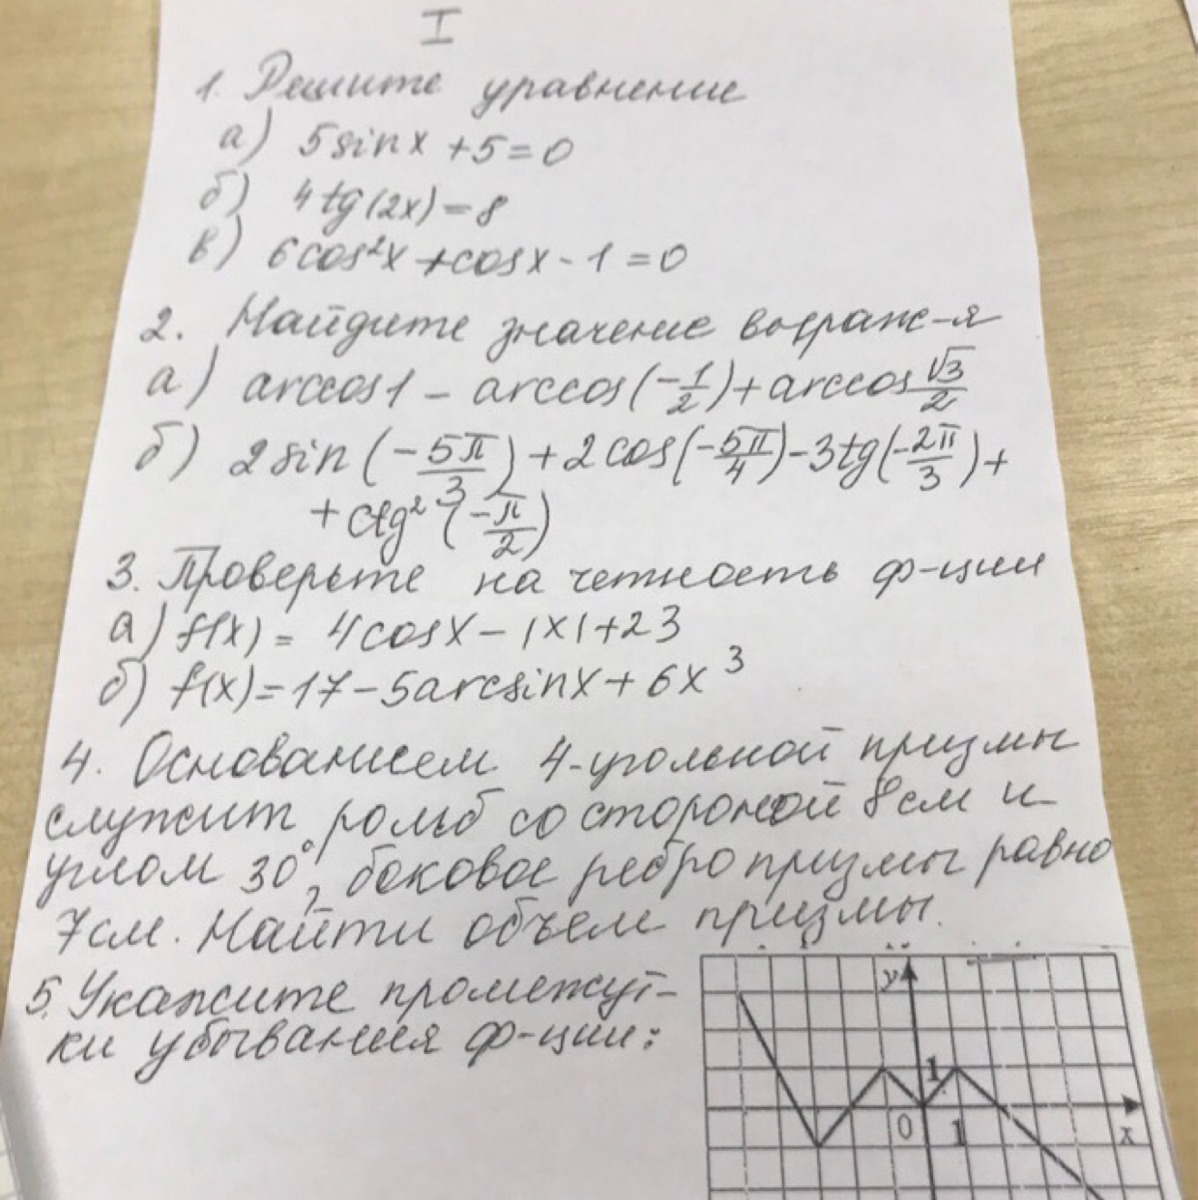 I
1. Решите уравнение
а) 5sinx + 5 = 0
б) 4tg(2x) = 8
в) 6cos²x + cosx - 1 = 0
2. Найдите значение выраж-я
а) arccos1 - arccos(-1/2) + arccos √3/2
б) 2sin(-5π/3) + 2cos(-5π/4) - 3tg(-2π/3) +
+ ctg²(-π/2)
3. Проверьте на четность ф-ции
а) f(x) = 4cosx - |x| + 23
б) f(x) = 17 - 5arcsinx + 6x³
4. Основанием 4-угольной призмы
служит ромб со стороной 8см и
углом 30°, боковое ребро призмы равно
7см. Найти объем призмы.
5. Укажите промежут-
ки убывания ф-ции:
y
1
0 1 x